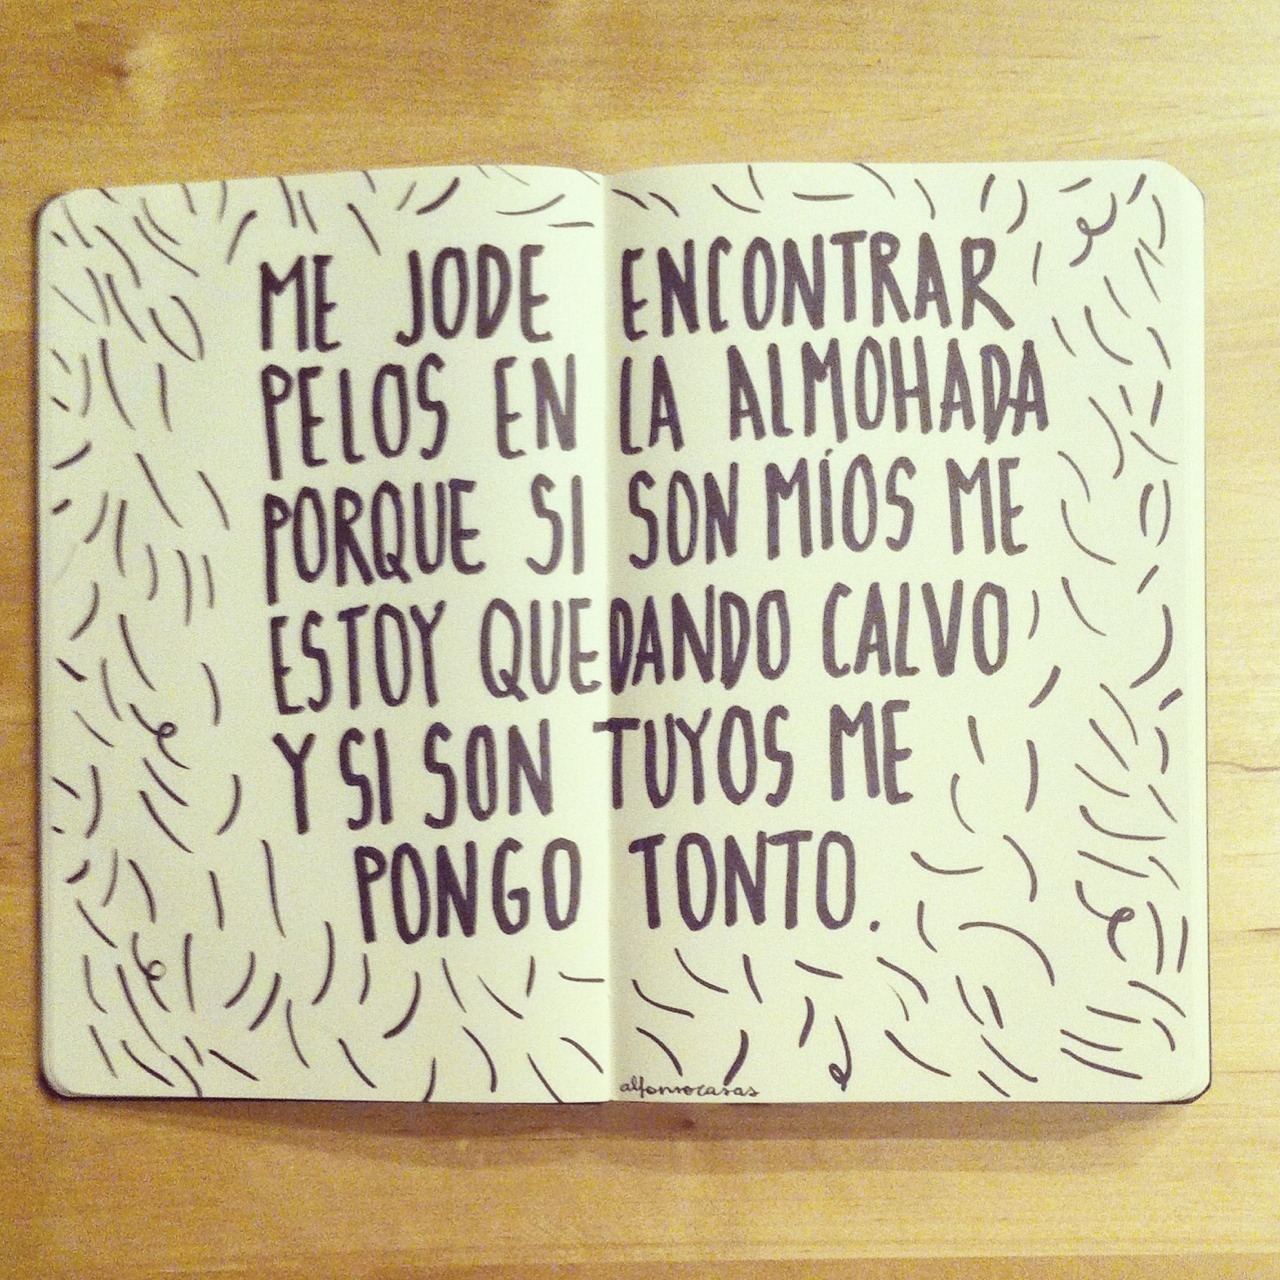 ME JODE ENCONTRAR
PELOS EN LA ALMOHADA
PORQUE SI SON MÍOS ME
ESTOY QUEDANDO CALVO
Y SI SON TUYOS ME
PONGO TONTO.
alfonsocasas